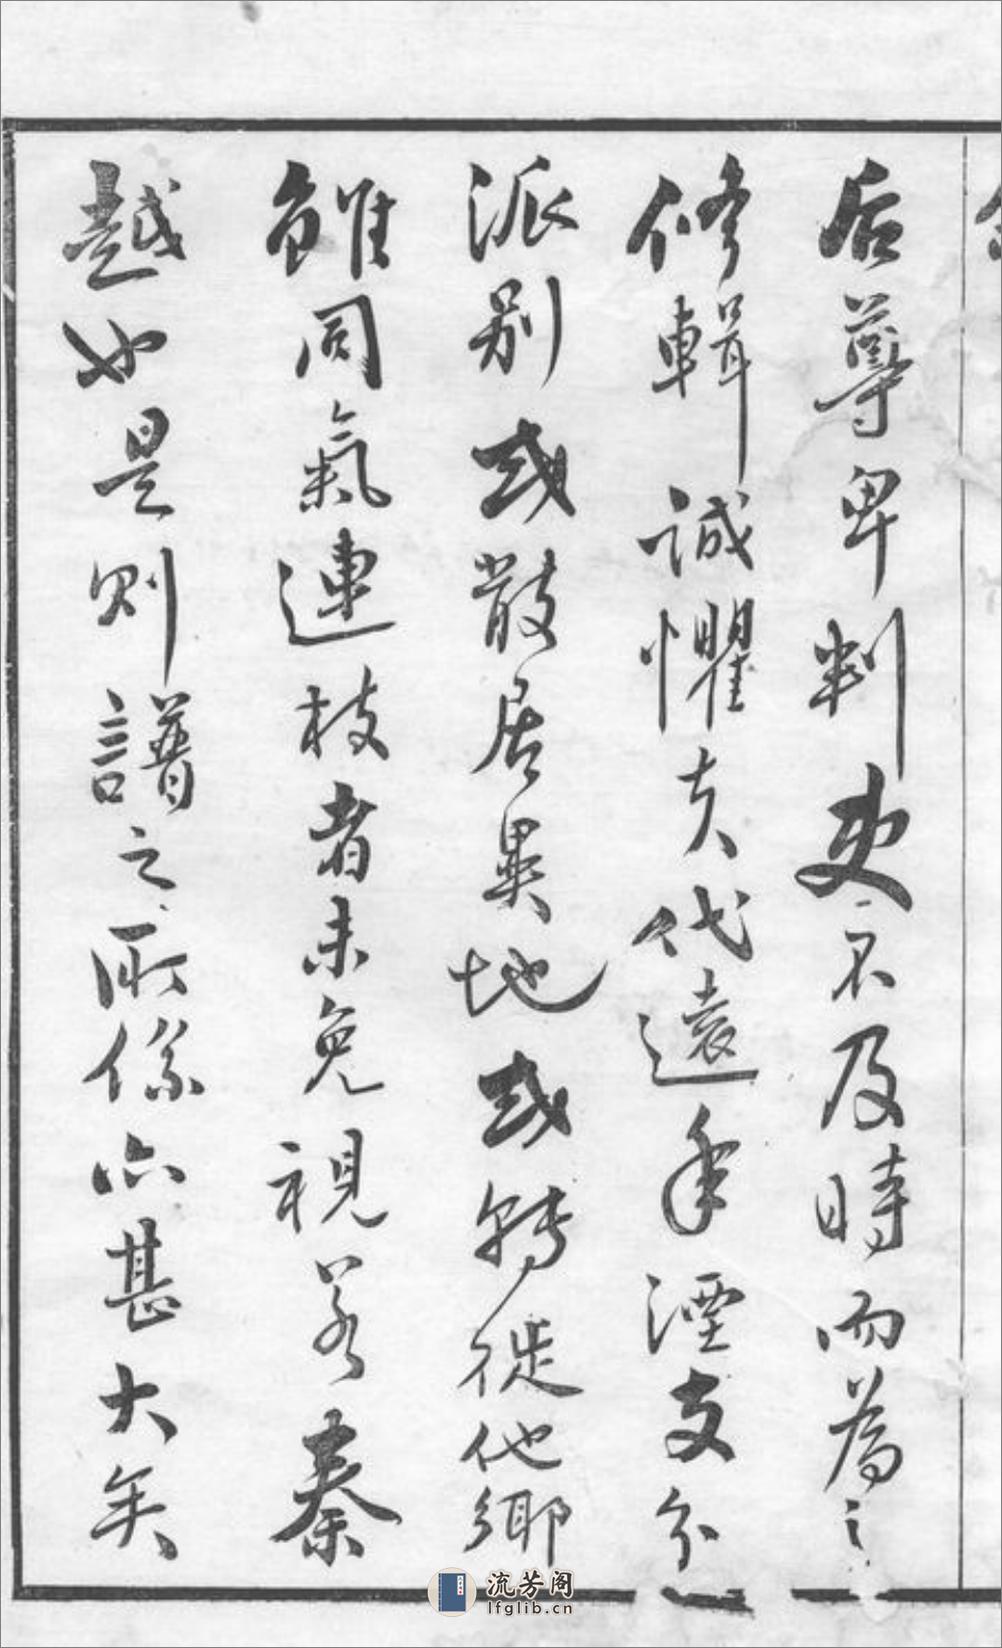 后尊卑判吏不及時而為之
修輯誠懼夫代遠年湮支分
派别或散居異地或轉徙他鄉
雖同氣連枝者未免視若秦
越也是则譜之所係亦甚大矣
流芳阁
lfglib.cn